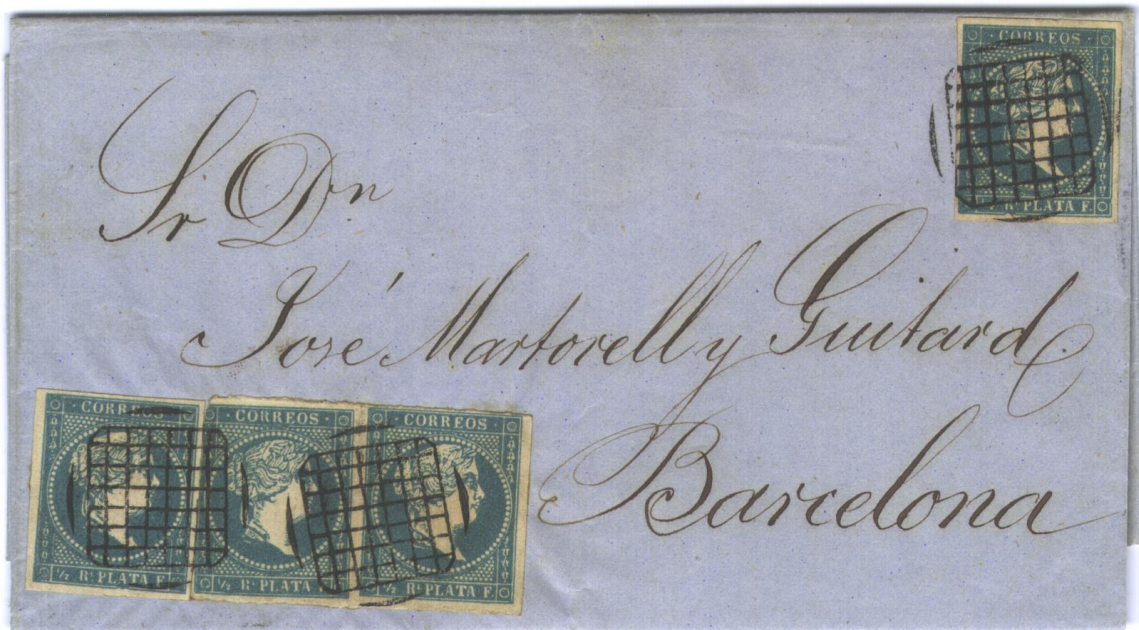 · CORREOS ·
½ Rˡ PLATA F.
Sr Dn
José Martorell y Guitard
Barcelona
· CORREOS ·
½ Rˡ PLATA F.
· CORREOS ·
½ Rˡ PLATA F.
· CORREOS ·
½ Rˡ PLATA F.